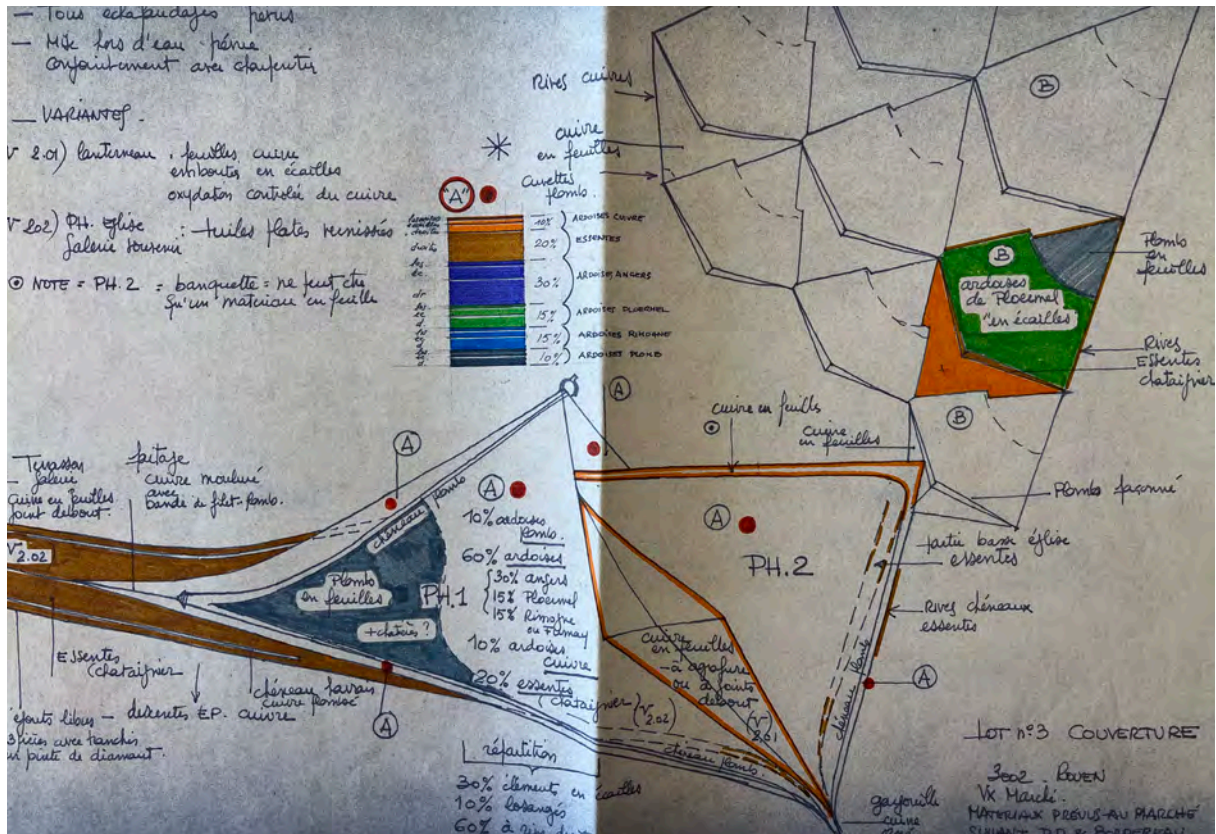 — Tous échafaudages prévus
— Mise hors d'eau prévue
conjointement avec charpentier
— VARIANTES.
V 2.01) lanterneau : feuilles cuivre
embouts en écailles
oxydation controlée du cuivre
V 2.02) PH. église
Galerie
: tuiles plates vernissées.
⊙ NOTE = PH.2 = banquette = ne peut être
qu'un matériau en feuille
"A"
10% ARDOISES CUIVRE
20% ESSENTES
30% ARDOISES ANGERS
15% ARDOISES PLOERMEL
15% ARDOISES RIMOGNE
10% ARDOISES PLOMB
Rives cuivres
cuivre
en feuilles
Cuvettes
plomb.
B
B
ardoises
de Ploermel
"en écailles"
Plomb
en
feuilles
Rives
ESSENTES
chataîgnier
B
Plomb façonné
A
cuivre en feuilles
⊙
Cuivre
en feuilles
partie basse église
essentes
Rives chéneaux
essentes
A
PH.2
A
chéneau plomb
Terrasson
galerie
cuivre en feuilles
joint debout.
faitage
cuivre mouluré
avec
bande de filet-plomb.
A
chéneau plomb
A
V 2.02
Plomb
en feuilles
PH.1
+chatières ?
10% ardoises
plomb.
60% ardoises
30% angers
15% Ploermel
15% Rimogne
ou Fumay
10% ardoises
cuivre
20% essentes
(chataîgnier)
(V 2.02)
cuivre
en feuilles
— à agrafure
ou à joints
debout
(V 2.01)
ESSENTES
(chataîgnier)
chéneau havrais
cuivre plombé
A
égouts libres — descentes E.P. cuivre
3 pièces avec tranchis
en pointe de diamant.
chéneau plomb.
répartition
30% éléments en écailles
10% losangés
60% à
LOT n°3 COUVERTURE
3002 - ROUEN
Vx Marché.
MATERIAUX PREVUS AU MARCHÉ
cuivre